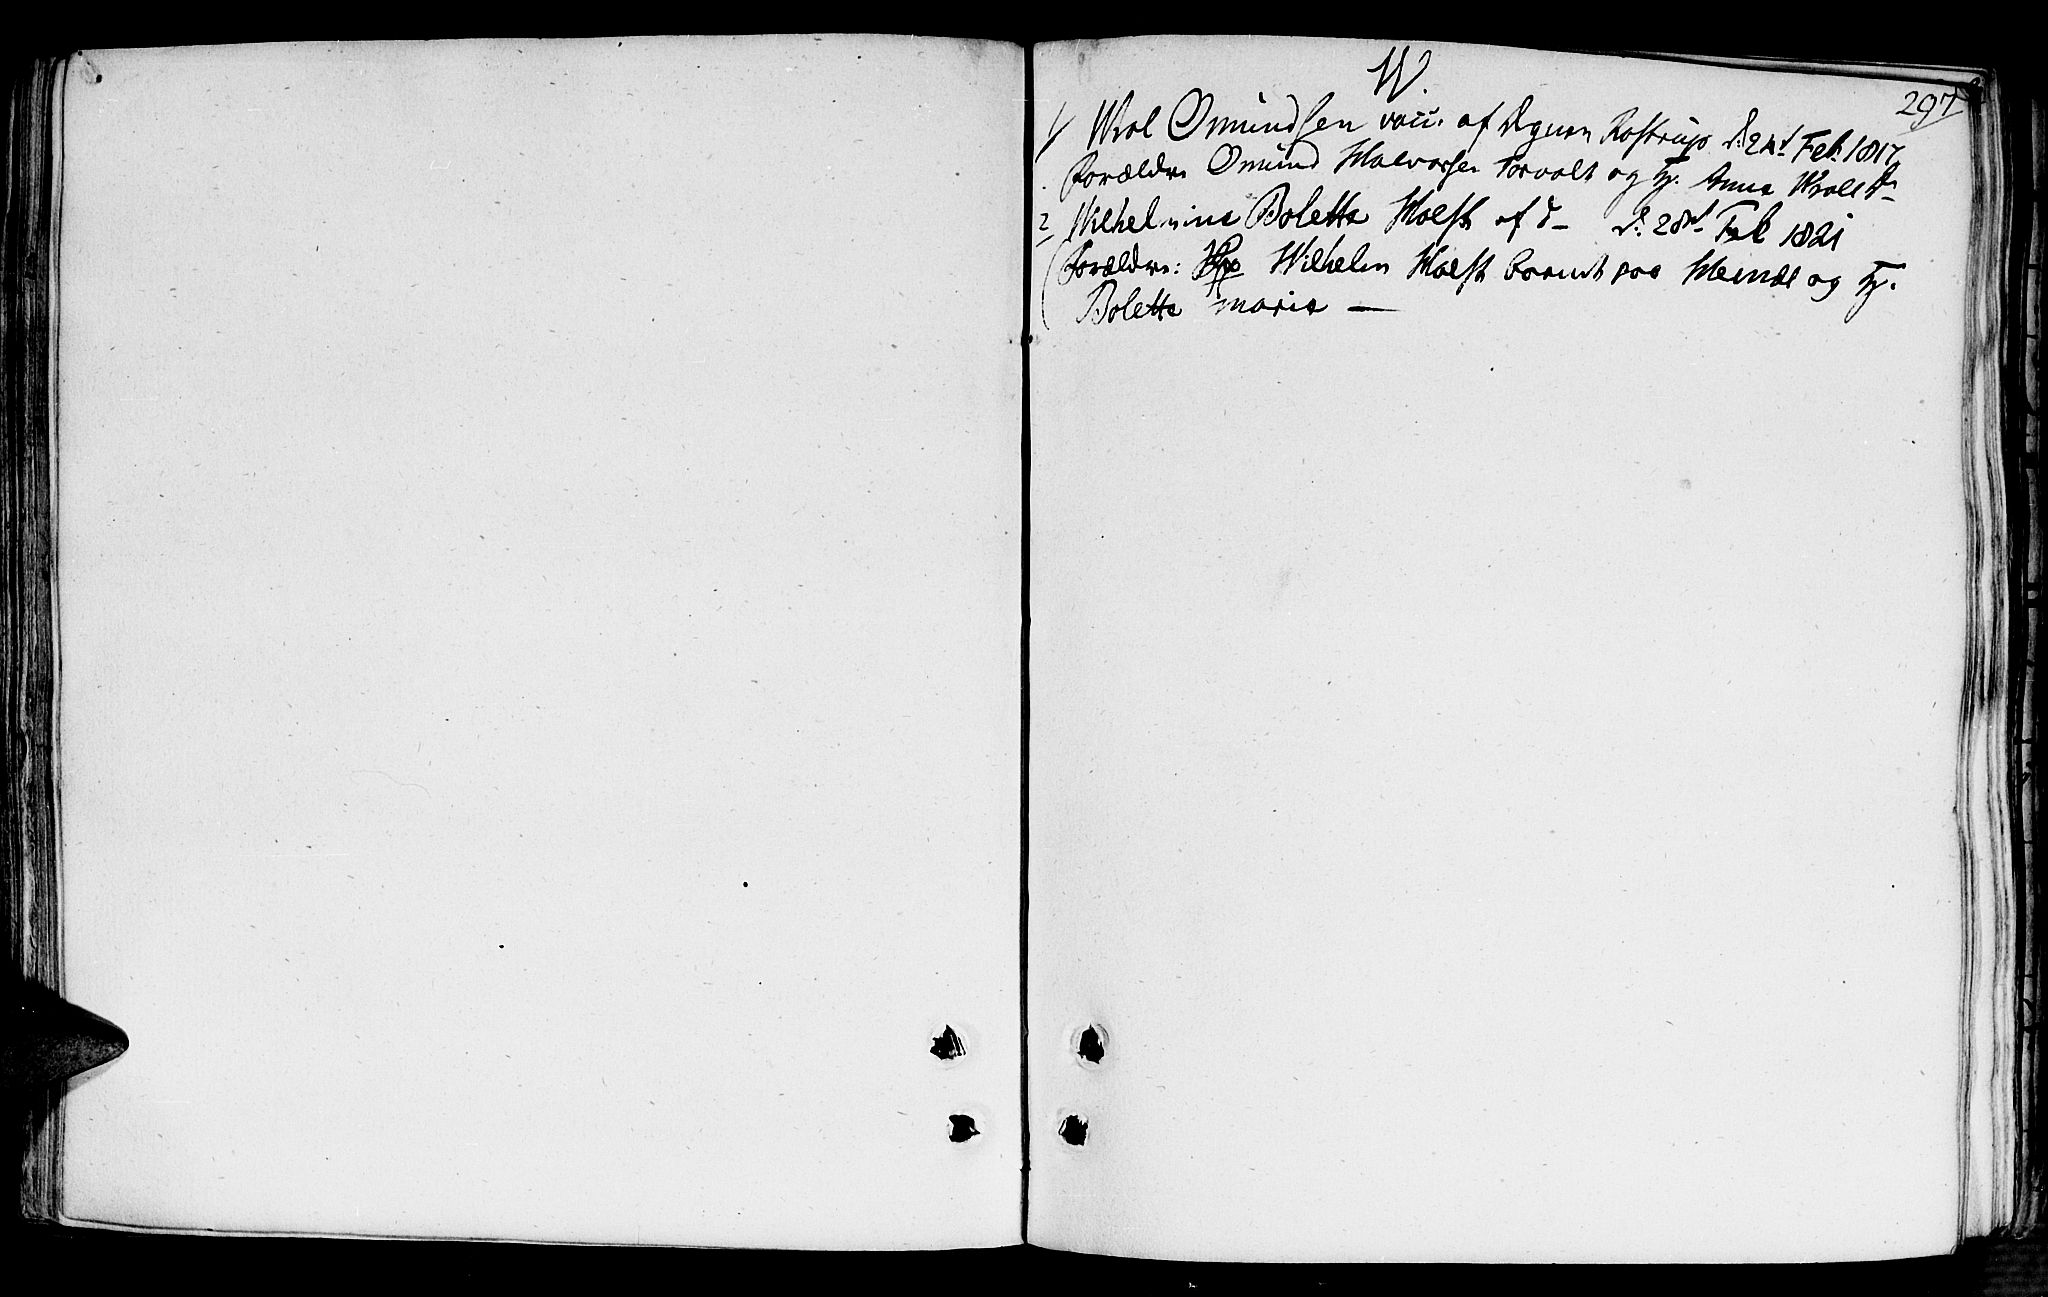 W.
297
1/ Wrol Omundsen vacc. af Degnen Rostrup d: 24d Feb 1817
Forældre Omund Halvorsen Torvolt og H. Anna Wrols Dr
2/ Wilhelmine Bolette Holst af d— d: 28d Feb 1821
Forældre: Wilhelm Holst paa og H.
Bolette Maria —